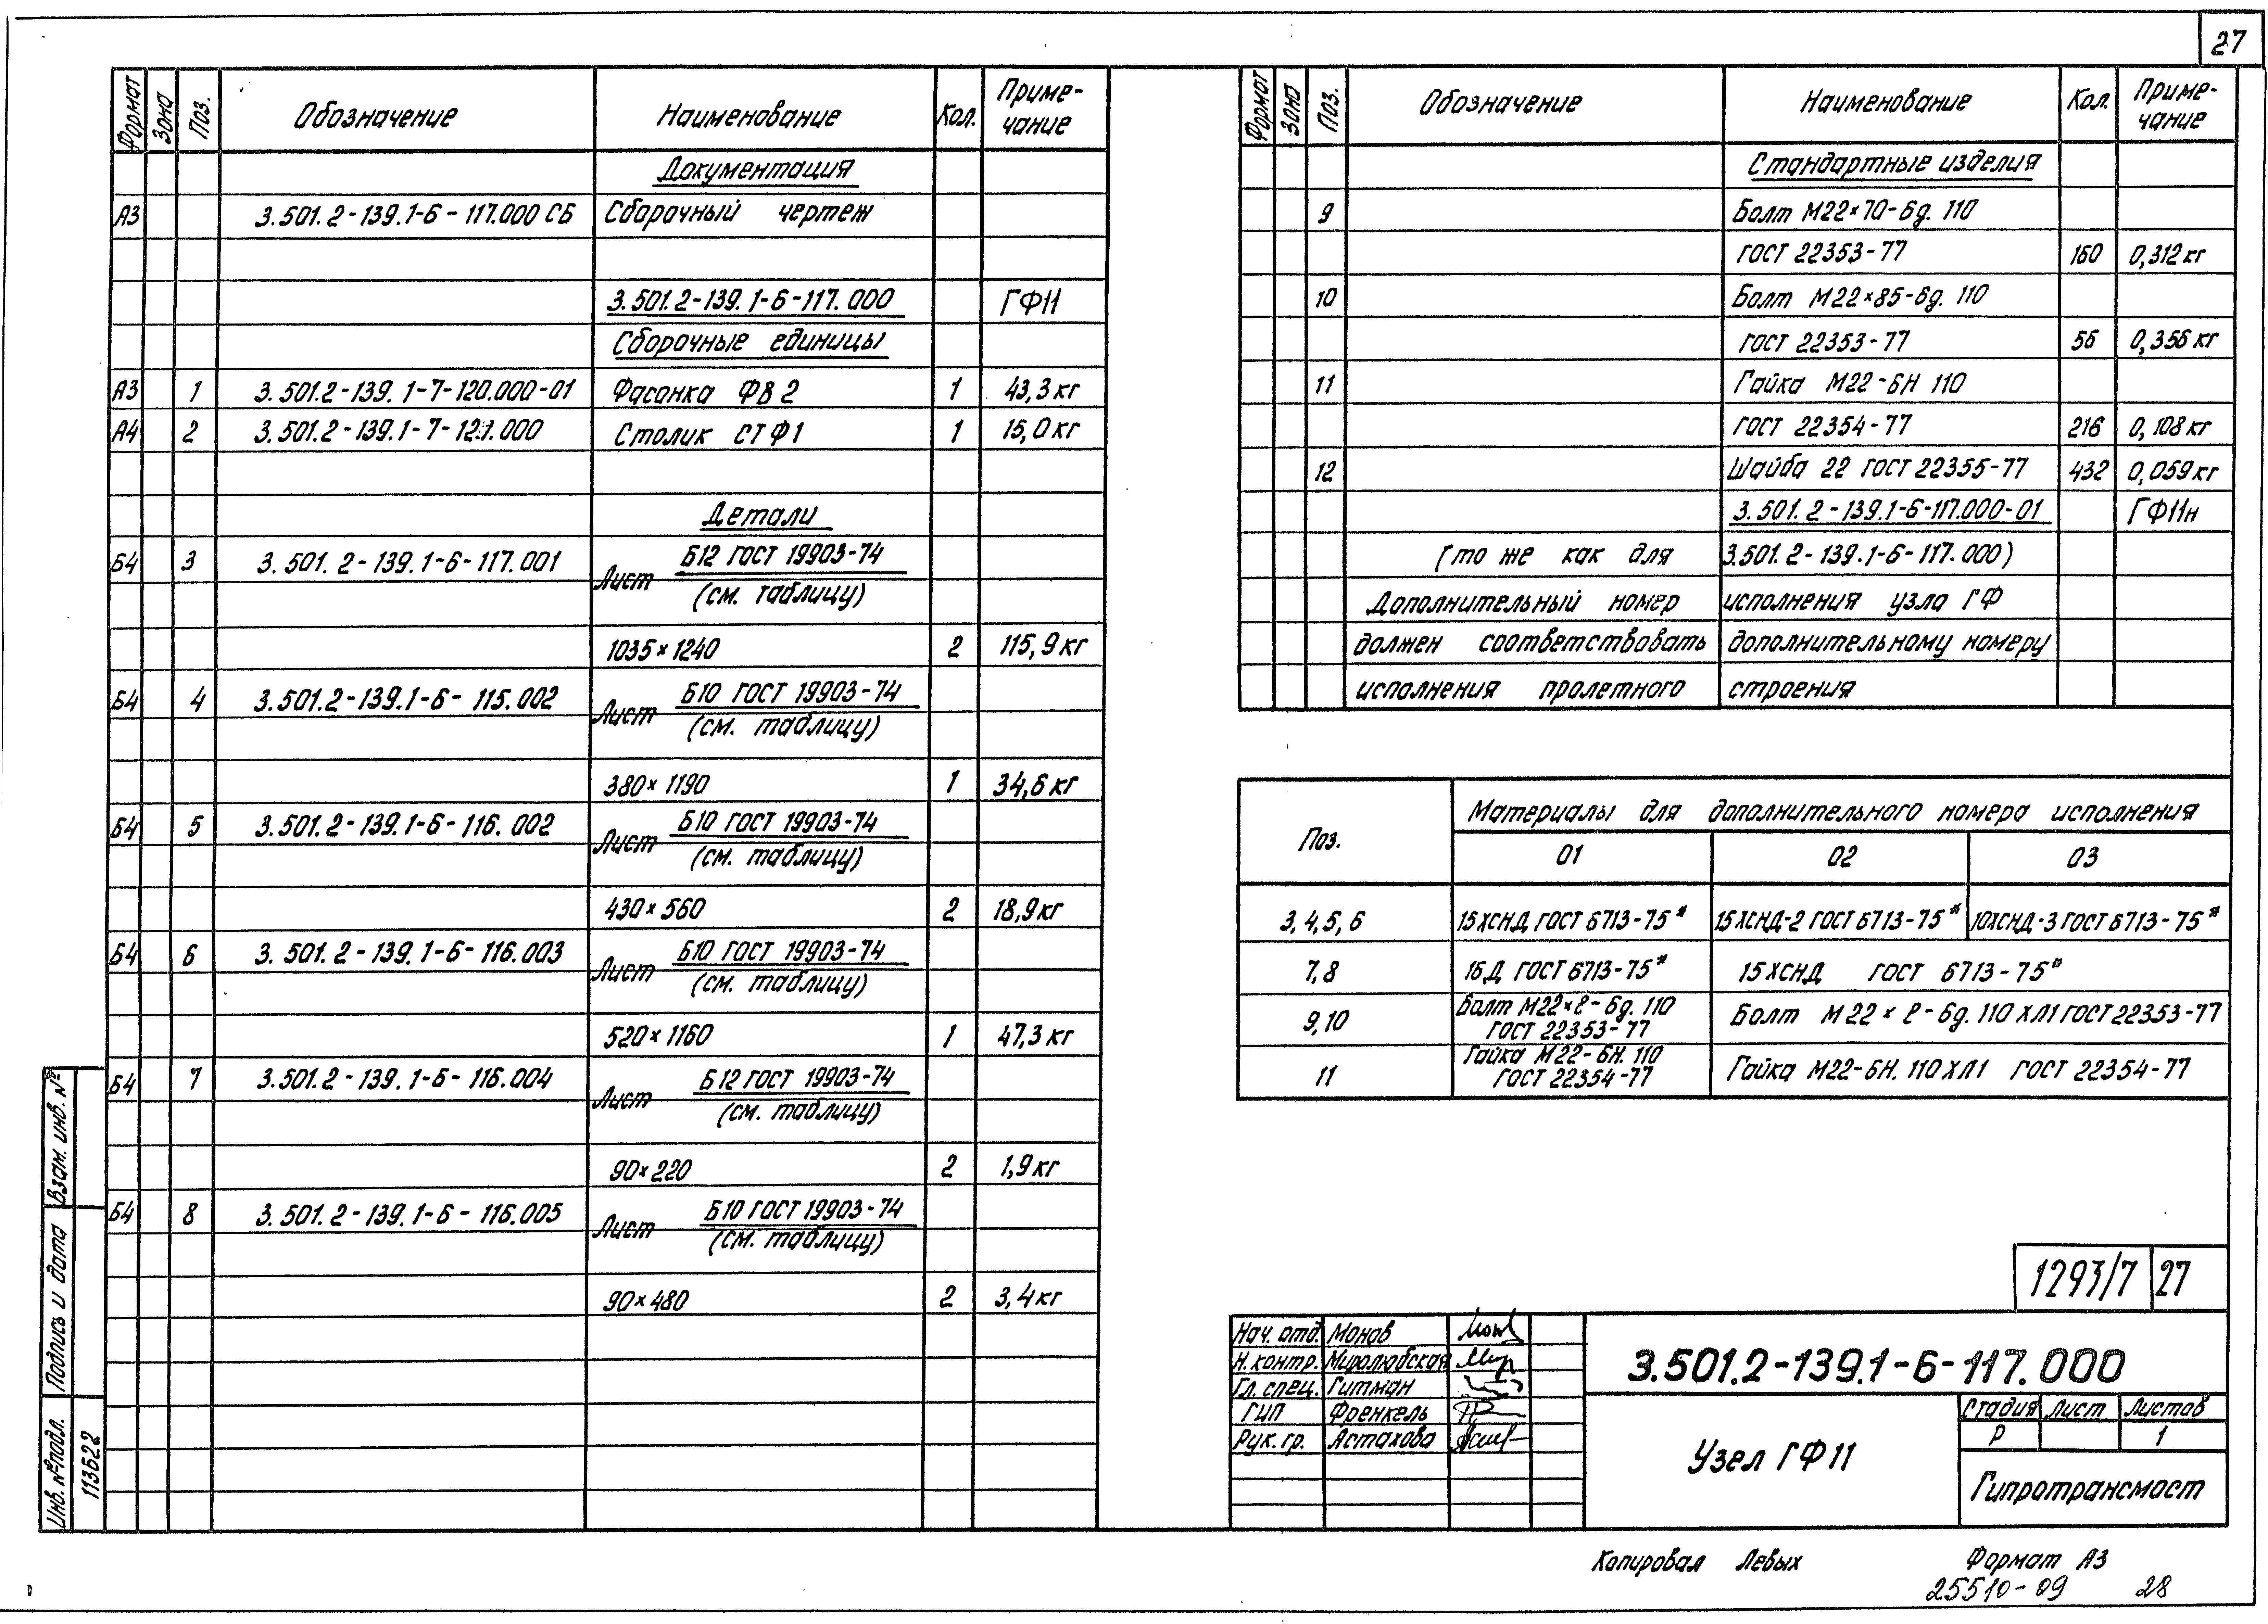 27
Формат Зона Поз. Обозначение Наименование Кол. Приме-чание
Документация
А3 3.501.2-139.1-6-117.000 СБ Сборочный чертеж
3.501.2-139.1-6-117.000 ГФ11
Сборочные единицы
А3 1 3.501.2-139.1-7-120.000-01 Фасонка ФВ2 1 43,3кг
А4 2 3.501.2-139.1-7-121.000 Столик СТФ1 1 15,0кг
Детали
Б4 3 3.501.2-139.1-6-117.001 Лист Б12 ГОСТ 19903-74
(см. таблицу)
1035×1240 2 115,9кг
Б4 4 3.501.2-139.1-6-115.002 Лист Б10 ГОСТ 19903-74
(см. таблицу)
380×1190 1 34,6кг
Б4 5 3.501.2-139.1-6-116.002 Лист Б10 ГОСТ 19903-74
(см. таблицу)
430×560 2 18,9кг
Б4 6 3.501.2-139.1-6-116.003 Лист Б10 ГОСТ 19903-74
(см. таблицу)
520×1160 1 47,3кг
Б4 7 3.501.2-139.1-6-116.004 Лист Б12 ГОСТ 19903-74
(см. таблицу)
90×220 2 1,9кг
Б4 8 3.501.2-139.1-6-116.005 Лист Б10 ГОСТ 19903-74
(см. таблицу)
90×480 2 3,4кг
Взам. инв. №
Подпись и дата
Инв. № подл.
113622
Формат Зона Поз. Обозначение Наименование Кол. Приме-чание
Стандартные изделия
9 Болт М22×70-6g. 110
ГОСТ 22353-77 160 0,312кг
10 Болт М22×85-6g. 110
ГОСТ 22353-77 56 0,356кг
11 Гайка М22-6Н 110
ГОСТ 22354-77 216 0,108кг
12 Шайба 22 ГОСТ 22355-77 432 0,059кг
3.501.2-139.1-6-117.000-01 ГФ11н
(то же как для 3.501.2-139.1-6-117.000)
Дополнительный номер исполнения узла ГФ
должен соответствовать дополнительному номеру
исполнения пролетного строения
Поз. Материалы для дополнительного номера исполнения
01 02 03
3,4,5,6 15ХСНД ГОСТ 6713-75* 15ХСНД-2 ГОСТ 6713-75* 10ХСНД-3 ГОСТ 6713-75*
7,8 16Д ГОСТ 6713-75* 15ХСНД ГОСТ 6713-75*
9,10 Болт М22×ℓ-6g. 110
ГОСТ 22353-77 Болт М22×ℓ-6g. 110 ХЛ1 ГОСТ 22353-77
11 Гайка М22-6Н. 110
ГОСТ 22354-77 Гайка М22-6Н. 110 ХЛ1 ГОСТ 22354-77
1293/7 27
Нач. отд. Монов
Н. контр. Миролюбская
Гл. спец. Гитман
ГИП Френкель
Рук. гр. Астахова
3.501.2-139.1-6-117.000
Узел ГФ11
Стадия Лист Листов
Р 1
Гипротрансмост
Копировал Левых Формат А3
25510-09 28